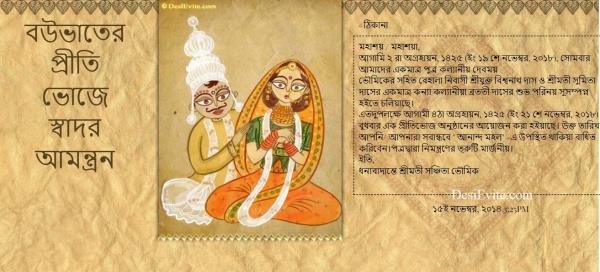 © DesiEvite.com
বউভাতের
প্রীতি
ভোজে
স্বাদর
আমন্ত্রন
ঠিকানা
মহাশয় / মহাশয়া,
আগামি ২ রা অগ্রহায়ন, ১৪২৫ (ইং ১৯ শে নভেম্বর, ২০১৮), সোমবার
আমাদের একমাত্র পুত্র কল্যানীয় দেবময়
ভৌমিকের সহিত বেহালা নিবাসী শ্রীযুক্ত বিশ্বনাথ দাস ও শ্রীমতী সুমিতা
দাসের একমাত্র কন্যা কল্যানীয়া ব্রততী দাসের শুভ পরিনয় সুসম্পন্ন
হইতে চলিয়াছে।
এতদুপলক্ষে আগামী ৪ঠা অগ্রহায়ন, ১৪২৫ (ইং ২১ শে নভেম্বর, ২০১৮)
বুধবার এক প্রীতিভোজ অনুষ্ঠানের আয়োজন করা হইয়াছে। উক্ত তারিখে
আপনি / আপনারা সবান্ধবে 'আনান্দ মহল' -এ উপস্থিত থাকিয়া বাধিত
করিবেন। পত্রদ্বারা নিমন্ত্রণের ত্রুটি মার্জনীয়।
ইতি,
ধন্যবাদান্তে শ্রীমতী সঞ্চিতা ভৌমিক
DesiEvite.com
১৫ই নভেম্বর, ২০১৪